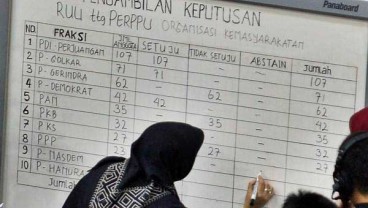 Panaboard
PENGAMBILAN KEPUTUSAN
RUU ttg PERPPU ORGANISASI KEMASYARAKATAN
NO FRAKSI JML ANGGOTA SETUJU TIDAK SETUJU ABSTAIN Jumlah
1 PDI-PERJUANGAN 107 107 - - 107
2 P-GOLKAR 71 71 - - 71
3 P-GERINDRA 62 - 62 - 62
4 P-DEMOKRAT 42 42 - - 42
5 PAN 35 - 35 - 35
6 PKB 32 - 32
7 PKS 27 27 - 27
8 PPP
9 P-NASDEM
10 P-HANURA
Jumlah